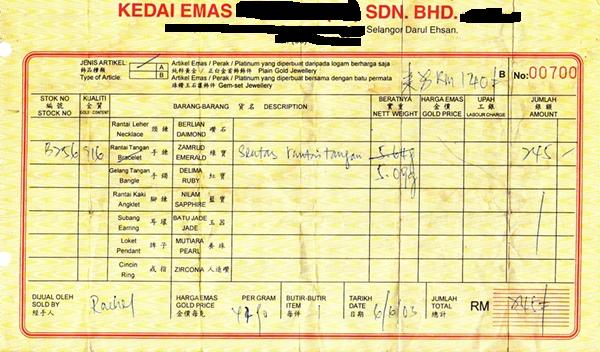 KEDAI EMAS SDN. BHD.
Selangor Darul Ehsan.
JENIS ARTIKEL
飾品種類
Type of Article:
A
B
Artikel Emas / Perak / Platinum yang diperbuat daripada logam berharga saja
純粹黃金 / 正白金首飾飾件 Plain Gold Jewellery
Artikel Emas / Perak / Platinum yang diperbuat bersama dengan batu permata
Gem-set Jewellery
RM 1240/
B
No: 00700
STOK NO
編號
STOCK NO
KUALITI
金質
GOLD CONTENT
BARANG-BARANG 貨名 DESCRIPTION
BERATNYA
實重
NETT WEIGHT
HARGA EMAS
金價
GOLD PRICE
UPAH
工銀
LABOUR CHARGE
JUMLAH
銀額
AMOUNT
Rantai Leher
Necklace
頸鍊
BERLIAN
DAIMOND
鑽石
B256 916
Rantai Tangan
Bracelet
手鍊
ZAMRUD
EMERALD
綠寶
Seutas rantai tangan
5.64g
245/
Gelang Tangan
Bangle
手鐲
DELIMA
RUBY
紅寶
5.09g
Rantai Kaki
Angklet
腳鍊
NILAM
SAPPHIRE
藍寶
Subang
Earring
耳環
BATU JADE
JADE
玉器
Loket
Pendant
牌子
MUTIARA
PEARL
養珠
Cincin
Ring
戒指
ZIRCONIA
人造鑽
DIJUAL OLEH
SOLD BY
經手人
Rachel
HARGA EMAS
GOLD PRICE
金價每克
PER GRAM
BUTIR-BUTIR
ITEM
每件
1
TARIKH
DATE
日期
6/6/03
JUMLAH
TOTAL
總計
RM
245/